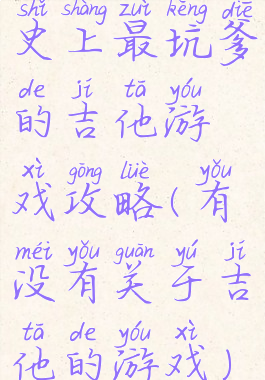 shǐ shàng zuì kēng diē
史上最坑爹
de jí tā yóu
的吉他游
xì gōng lüè yǒu
戏攻略(有
méi yǒu guān yú jí
没有关于吉
tā de yóu xì
他的游戏)